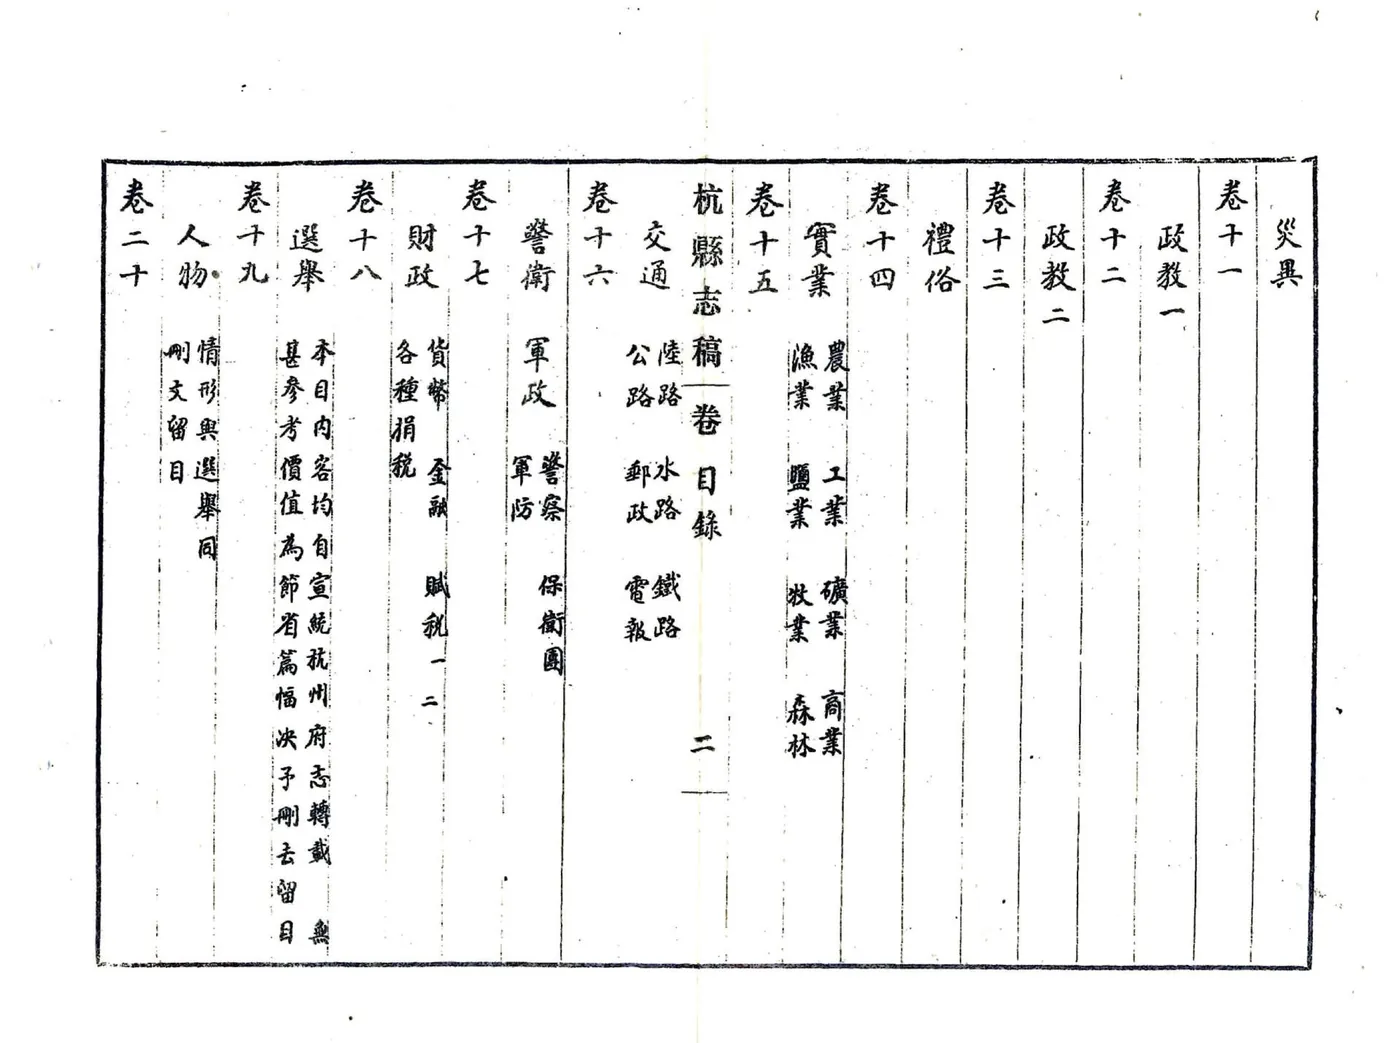 災異
卷十一
政教一
卷十二
政教二
卷十三
禮俗
卷十四
實業 農業 工業 礦業 商業
漁業 鹽業 牧業 森林
卷十五
杭縣志稿 卷目錄 二
交通 陸路 水路 鐵路
公路 郵政 電報
卷十六
警衛 軍政 警察 保衛團
軍防
卷十七
財政 貨幣 金融 賦稅一二
各種捐稅
卷十八
選舉 本目內容均自宣統杭州府志轉載 無
甚參考價值為節省篇幅決予刪去留目
卷十九
人物 情形與選舉同
刪文留目
卷二十